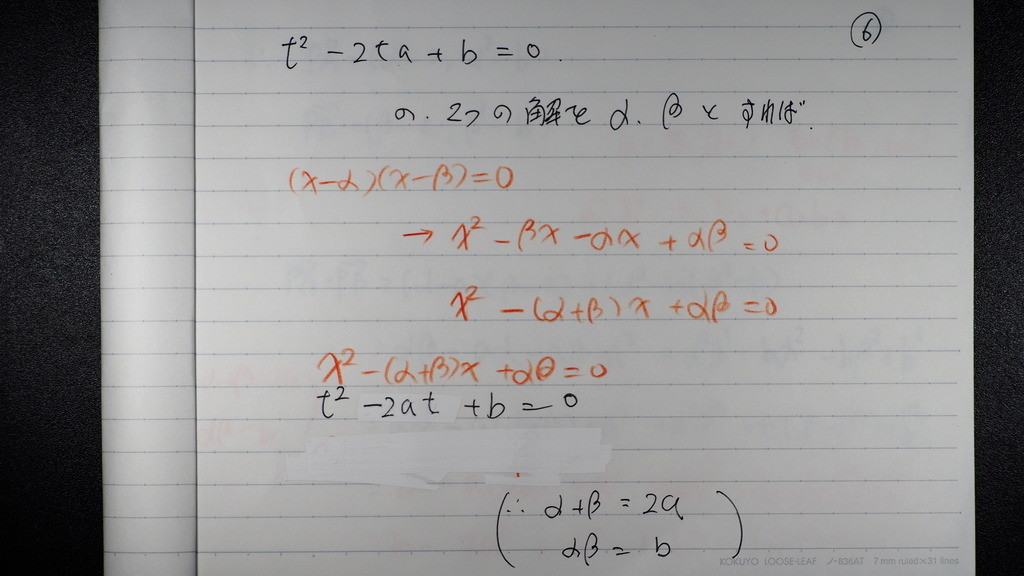 ⑥
t² - 2ta + b = 0.
の. 2つの解を α. β と すれば.
(x-α)(x-β)=0
→ x² - βx - αx + αβ = 0
x² - (α+β)x + αβ = 0
x² - (α+β)x + αθ = 0
t² - 2at + b = 0
(∴ α+β = 2a
αβ = b)
KOKUYO LOOSE-LEAF ノ-836AT 7 mm ruled×31 lines